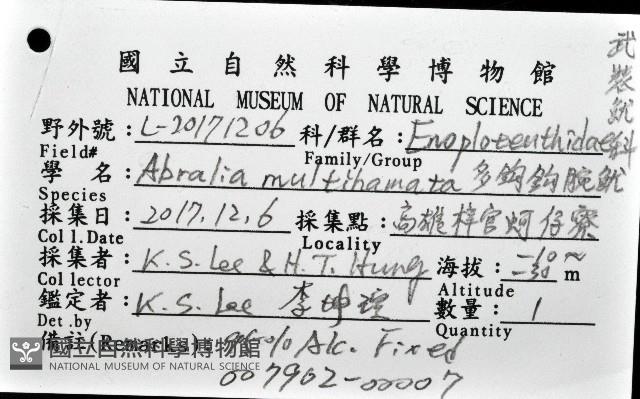 國立自然科學博物館
NATIONAL MUSEUM OF NATURAL SCIENCE
武裝魷科
野外號：L-20171206 科/群名：Enoploteuthidae
Field# Family/Group
學 名：Abralia multihamata 多鉤鉤腕魷
Species
採集日：2017.12.6 採集點：高雄梓官蚵仔寮
Coll.Date Locality
採集者：K.S.Lee & H.T.Hung 海拔： m
Collector Altitude
鑑定者：K.S.Lee 李坤瑄 數量：1
Det.by Quantity
備註(Remarks) Alc. Fixed
國立自然科學博物館
NATIONAL MUSEUM OF NATURAL SCIENCE
007902-00007